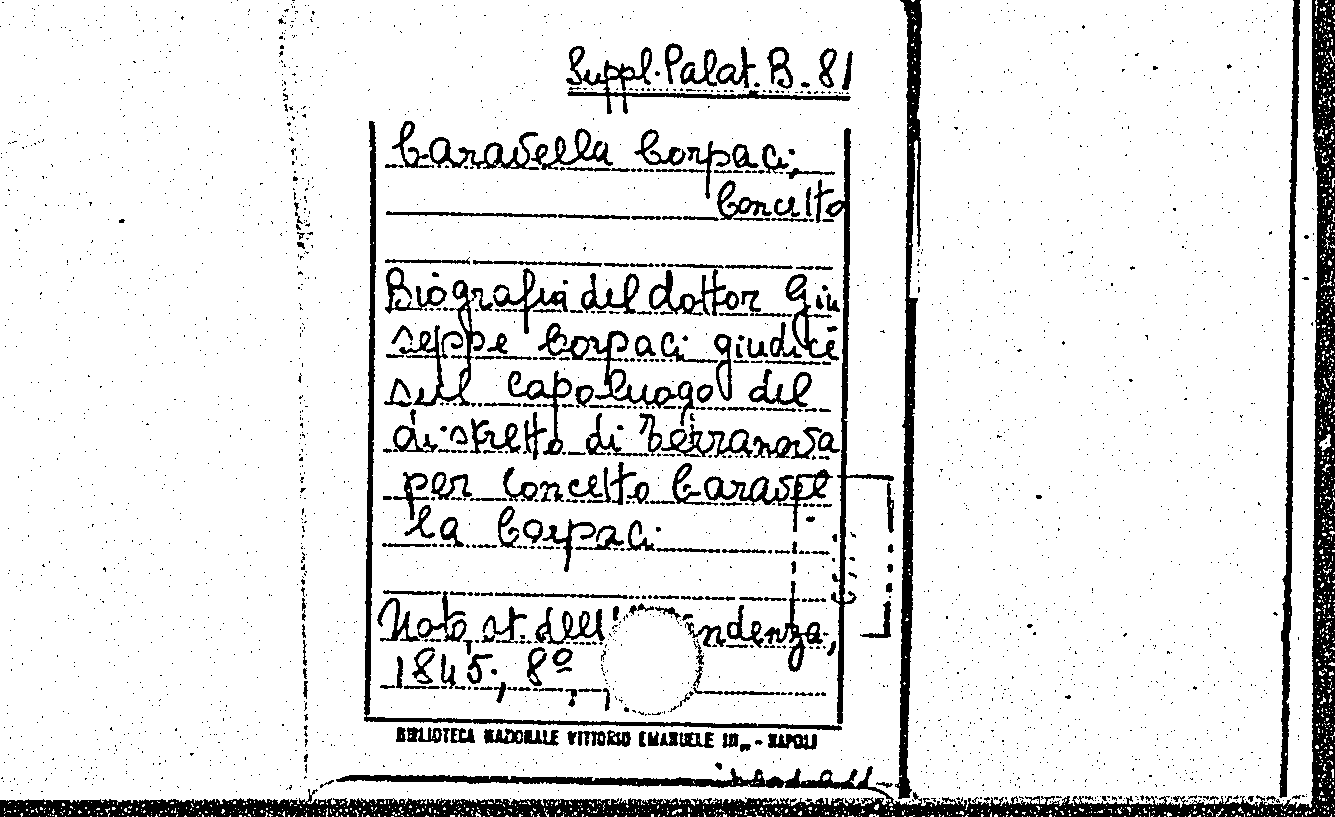 Suppl. Palat. B. 81
Caravella Corpaci,
Concetto
Biografia del dottor Giu
seppe Corpaci giudice
sul capoluogo del
distretto di Terranova
per Concetto Caravel
la Corpaci
Noto, st. dell'
1845, 8º
BIBLIOTECA NAZIONALE VITTORIO EMANUELE III - NAPOLI